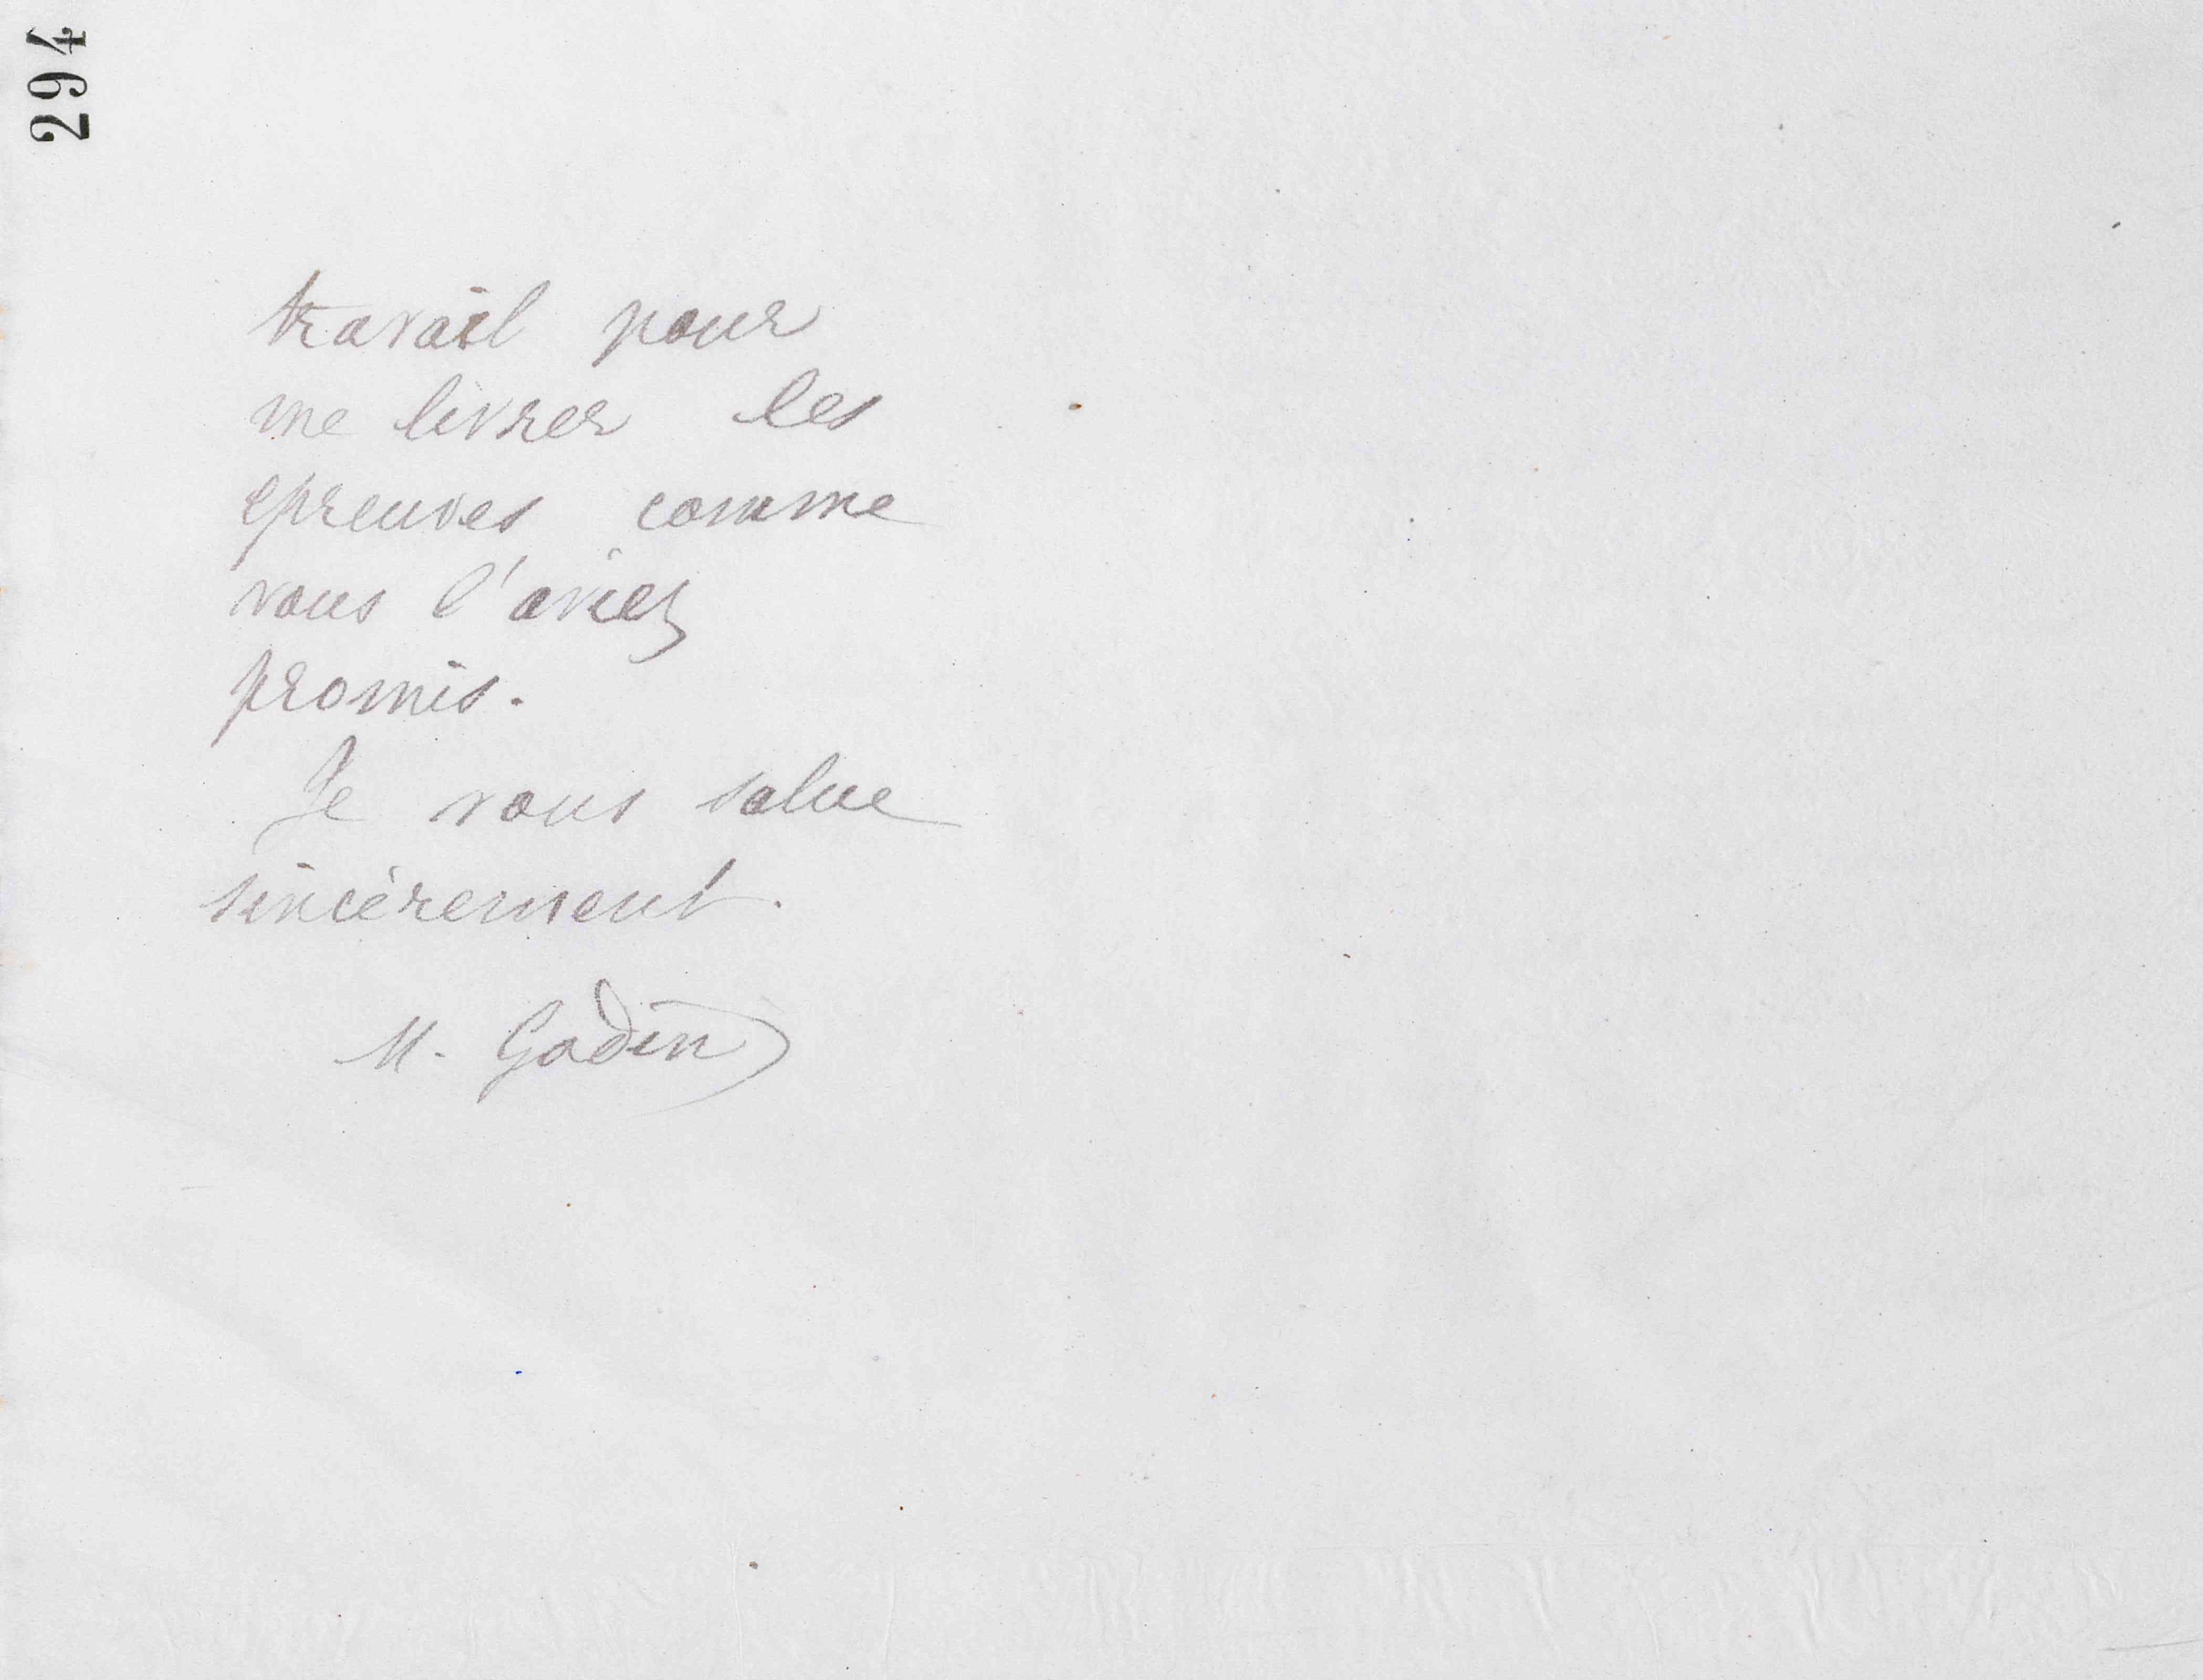 294
travail pour
me livrer les
epreuves comme
vous l'aviez
promis.
Je vous salue
sincèrement.
M. Godin